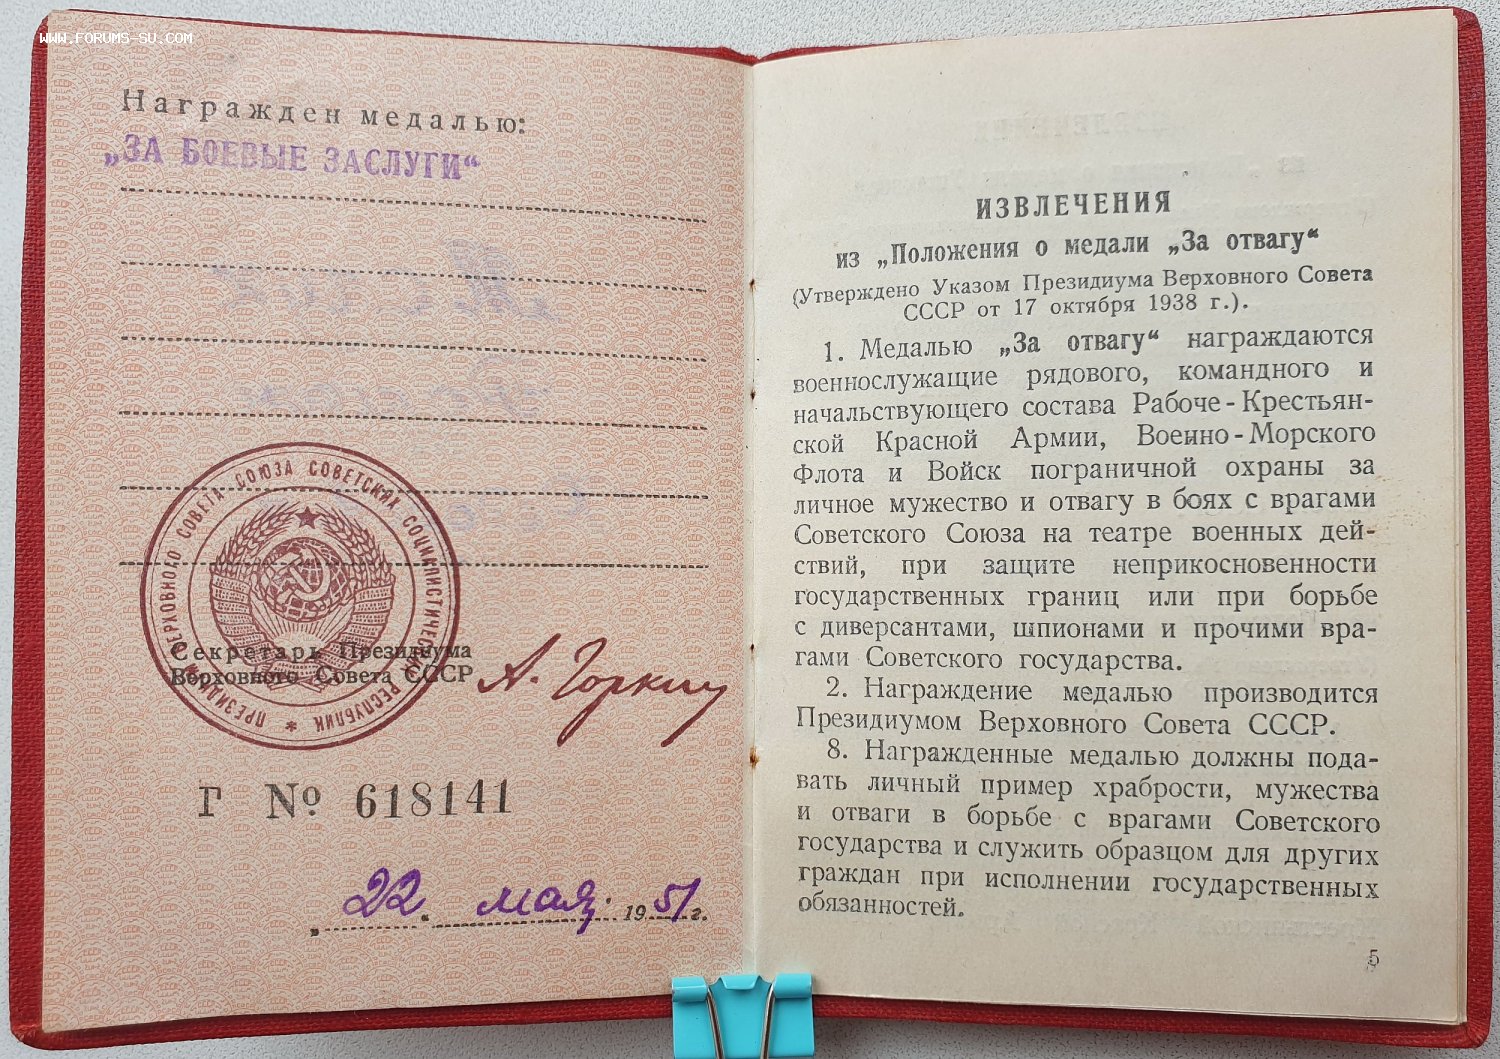 WWW.FORUMS-SU.COM
Награжден медалью:
„ЗА БОЕВЫЕ ЗАСЛУГИ“
ПРЕЗИДИУМ ВЕРХОВНОГО СОВЕТА СОЮЗА СОВЕТСКИХ СОЦИАЛИСТИЧЕСКИХ РЕСПУБЛИК *
Секретарь Президиума
Верховного Совета СССР
А. Горкин
Г № 618141
„22“ мая 1951 г.
ИЗВЛЕЧЕНИЯ
из „Положения о медали „За отвагу“
(Утверждено Указом Президиума Верховного Совета
СССР от 17 октября 1938 г.).
1. Медалью „За отвагу“ награждаются
военнослужащие рядового, командного и
начальствующего состава Рабоче-Крестьян-
ской Красной Армии, Военно-Морского
Флота и Войск пограничной охраны за
личное мужество и отвагу в боях с врагами
Советского Союза на театре военных дей-
ствий, при защите неприкосновенности
государственных границ или при борьбе
с диверсантами, шпионами и прочими вра-
гами Советского государства.
2. Награждение медалью производится
Президиумом Верховного Совета СССР.
8. Награжденные медалью должны пода-
вать личный пример храбрости, мужества
и отваги в борьбе с врагами Советского
государства и служить образцом для других
граждан при исполнении государственных
обязанностей.
5